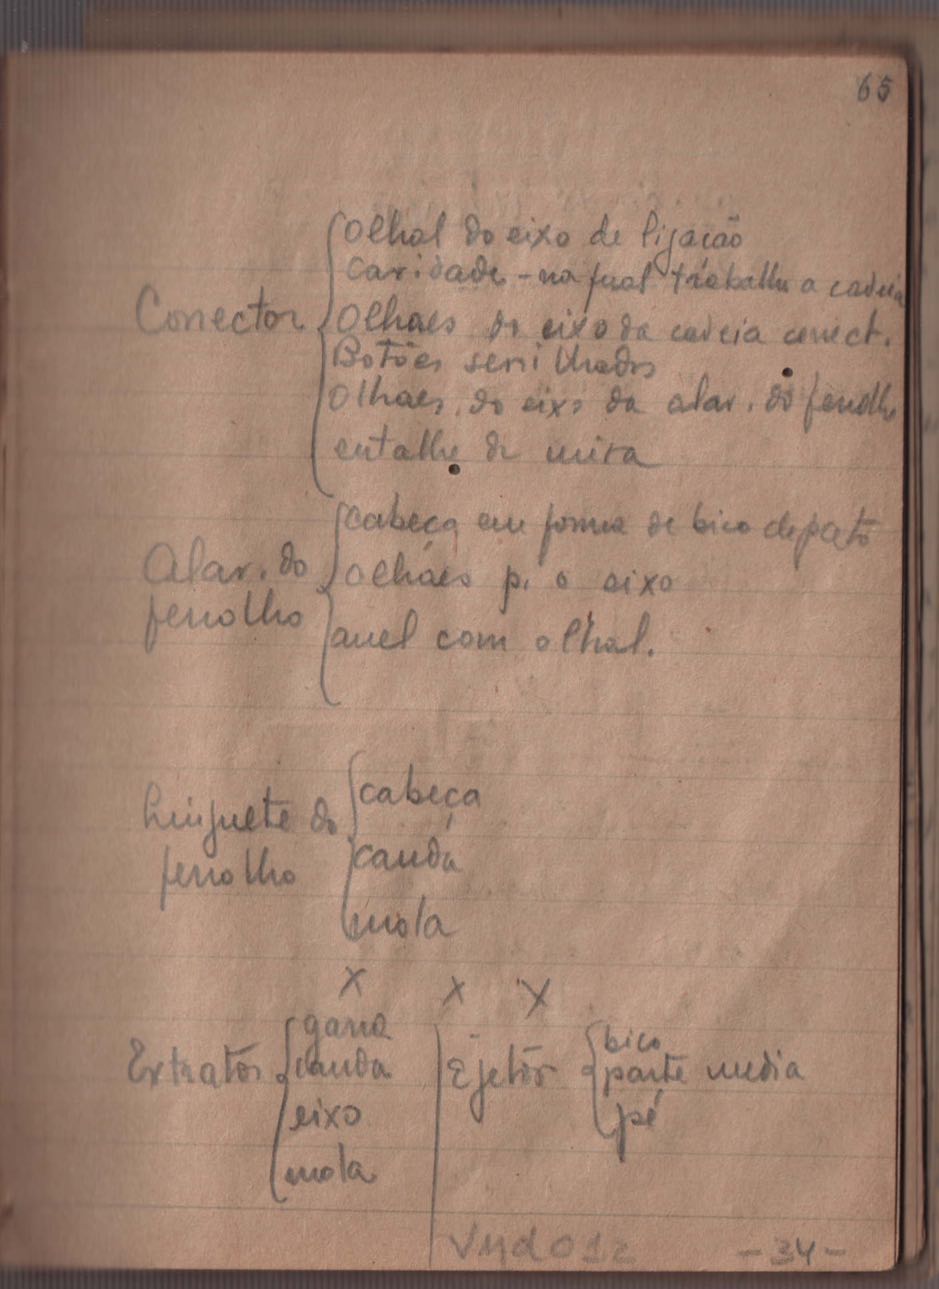 65
Conector
olhal do eixo de ligação
cavidade - na qual trabalha a cadeia
Olhaes do eixo da cadeia conect.
Botões serrilhados
Olhaes do eixo da alav. do ferrolho
entalhe de mira
Alav. do ferrolho
cabeça em forma de bico de pato
olháes p. o eixo
anel com olhal.
Linguete do ferrolho
cabeça
cauda
mola
X X X
Extratôr
garra
cauda
eixo
mola
Ejetôr
bico
parte media
pé
- 34 -